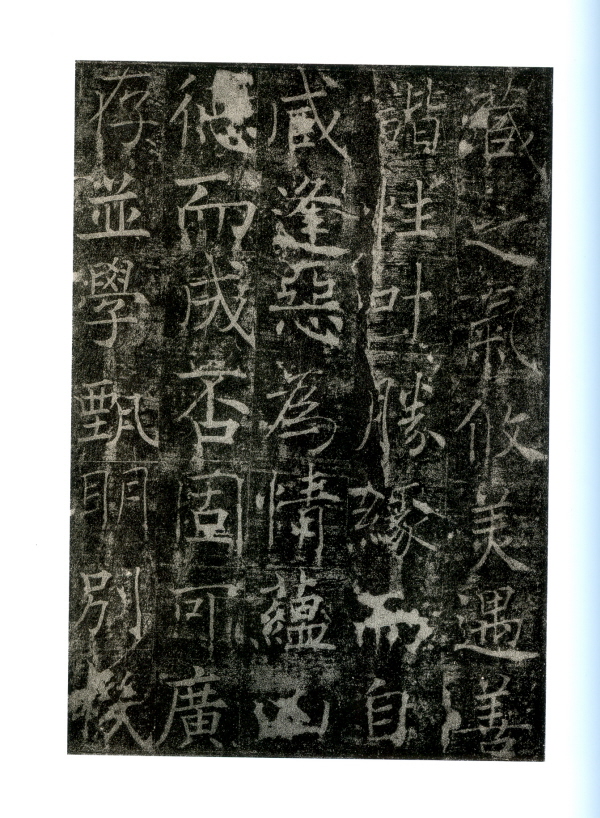 藏之氣攸美遇善
諧性叶勝緣而自
咸逢惡為情蘊凶
德而成否固可廣
存並學甄明別機